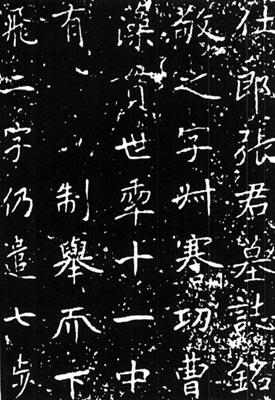 仕郎張君墓誌銘
敬之字叔謇功曹
世年十一中
有制舉而下
飛二字仍遣七步